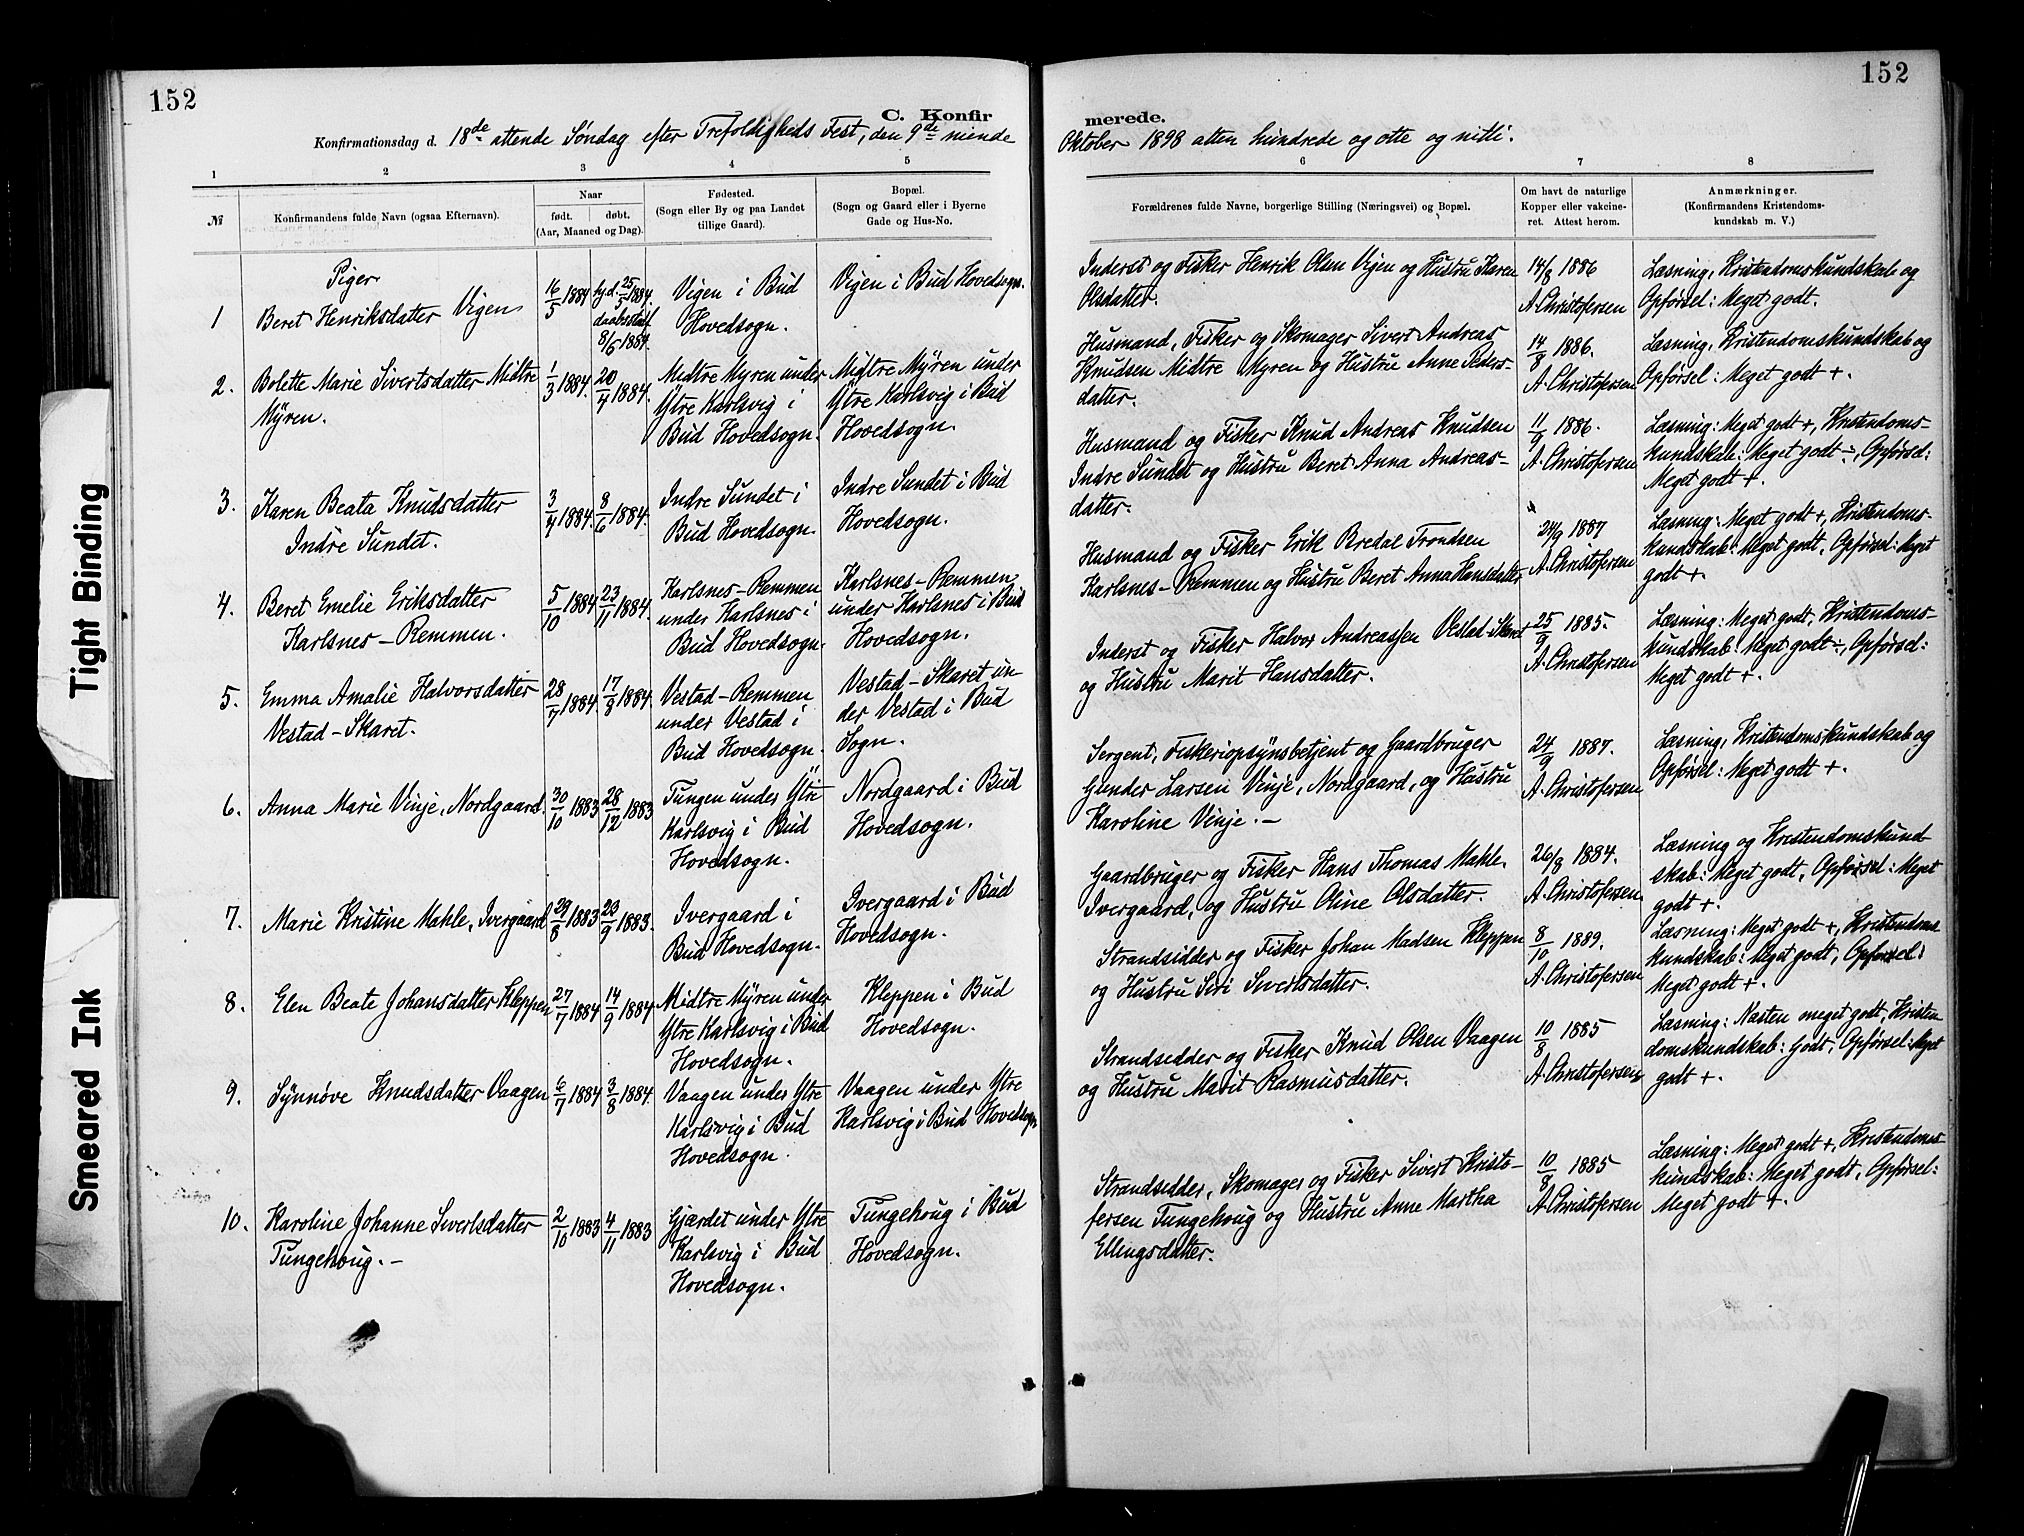 152
C. Konfir
Konfirmationsdag d. 18de attende Søndag efter Trefoldigheds Fest, den 9de niende
1 2 3 4 5
№
Konfirmandens fulde Navn (ogsaa Efternavn).
Naar
født. døbt.
(Aar, Maaned og Dag).
Fødested.
(Sogn eller By og paa Landet
tillige Gaard).
Bopæl.
(Sogn og Gaard eller i Byerne
Gade og Hus-No.
Piger
1 Beret Henriksdatter Vigen
16/5 1884
hjd. 25/5 1884.
daabsstadf.
8/6 1884.
Vigen i Bud
Hovedsogn.
Vigen i Bud Hovedsogn.
2. Bolette Marie Sivertsdatter Midtre
Myren.
1/3 1884. 20/4 1884.
Midtre Myren under
Ytre Karlsvig i
Bud Hovedsogn.
Midtre Myren under
Ytre Karlsvig i Bud
Hovedsogn.
3. Karen Beata Knudsdatter
Indre Sundet.
3/4 1884. 8/6 1884.
Indre Sundet i
Bud Hovedsogn.
Indre Sundet i Bud
Hovedsogn.
4. Beret Emelie Eriksdatter
Karlsnes-Remmen.
5/10 1884. 23/11 1884.
Karlsnes-Remmen
under Karlsnes i
Bud Hovedsogn.
Karlsnes-Remmen
under Karlsnes i Bud
Hovedsogn.
5. Emma Amalie Halvorsdatter
Vestad-Skaret.
28/7 1884. 17/8 1884.
Vestad-Remmen
under Vestad i
Bud Hovedsogn.
Vestad-Skaret un-
der Vestad i Bud
Sogn.
6. Anna Marie Vinje, Nordgaard.
30/10 1883 28/12 1883
Tungen under Ytre
Karlsvig i Bud
Hovedsogn.
Nordgaard i Bud
Hovedsogn.
7. Marie Kristine Mahle, Ivergaard
29/8 1883 23/9 1883.
Ivergaard i
Bud Hovedsogn.
Ivergaard i Bud
Hovedsogn.
8. Elen Beate Johansdatter Kleppen
27/7 1884 14/9 1884
Midtre Myren under
Ytre Karlsvig i Bud
Hovedsogn.
Kleppen i Bud
Hovedsogn.
9. Synnøve Knudsdatter Vaagen
6/7 1884 3/8 1884.
Vaagen under Ytre
Karlsvig i Bud
Hovedsogn.
Vaagen under Ytre
Karlsvig i Bud Hovedsogn
10. Karoline Johanne Sivertsdatter
Tungehoug.-
2/10 1883 4/11 1883
Gjærdet under Ytre
Karlsvig i Bud
Hovedsogn.
Tungehoug i Bud
Hovedsogn.
152
merede.
Oktober 1898 atten hundrede og otte og nitti.
6 7 8
Forældrenes fulde Navne, borgerlige Stilling (Næringsvei) og Bopæl.
Om havt de naturlige
Kopper eller vakcine-
ret. Attest herom.
Anmærkninger.
(Konfirmandens Kristendoms-
kundskab m. V.)
Inderst og Fisker Henrik Olsen Vigen og Hustru Karen
Olsdatter.
14/8 1886
A. Christofersen
Læsning, Kristendomskundskab og
Opførsel: Meget godt.
Husmand, Fisker og Skomager Sivert Andreas
Knudsen Midtre Myren og Hustru Anne Peders-
datter.
14/8 1886.
A. Christofersen
Læsning, Kristendomskundskab og
Opførsel: Meget godt +.
Husmand og Fisker Knud Andreas Knudsen
Indre Sundet og Hustru Beret Anna Andreas-
datter.
11/9 1886.
A. Christofersen
Læsning: Meget godt +, Kristendoms-
kundskab: Meget godt ÷, Opførsel:
Meget godt +.
Husmand og Fisker Erik Bredal Trondsen
Karlsnes-Remmen og Hustru Beret Anna Hansdatter
24/9 1887
A. Christofersen
Læsning: Meget godt +, Kristendoms-
kundskab: Meget godt, Opførsel: Meget
godt +.
Inderst og Fisker Halvor Andreassen Vestad-Skaret
og Hustru Marit Hansdatter.
25/9 1885.
A. Christofersen
Læsning: Meget godt, Kristendoms-
kundskab: Meget godt ÷, Opførsel:
Meget godt +.
Sergent, Fiskeriopsynsbetjent og Gaardbruger
Gunder Larsen Vinje, Nordgaard, og Hustru
Karoline Vinje.-
24/9 1887.
A. Christofersen
Læsning, Kristendomskundskab og
Opførsel: Meget godt +.
Gaardbruger og Fisker Hans Thomas Mahle,
Ivergaard, og Hustru Oline Olsdatter.
26/8 1884.
A. Christofersen
Læsning og Kristendomskund-
skab: Meget godt, Opførsel: Meget
godt +.
Strandsidder og Fisker Johan Madsen Kleppen
og Hustru Siri Sivertsdatter.
8/10 1889.
A. Christofersen
Læsning: Meget godt +, Kristendoms
kundskab: Meget godt, Opførsel:
Meget godt +.
Strandsedder og Fisker Knud Olsen Vaagen
og Hustru Marit Rasmusdatter.
10/8 1885
A. Christofersen
Læsning: Næsten meget godt, Kristen-
domskundskab: Godt, Opførsel: Meget
godt +.
Strandsedder, Skomager og Fisker Sivert Kristo-
fersen Tungehoug og Hustru Anne Martha
Ellingsdatter.
10/8 1885
A. Christofersen
Læsning: Meget godt +, Kristendoms-
kundskab: Meget godt, Opførsel:
Meget godt +.
Tight Binding
Smeared Ink